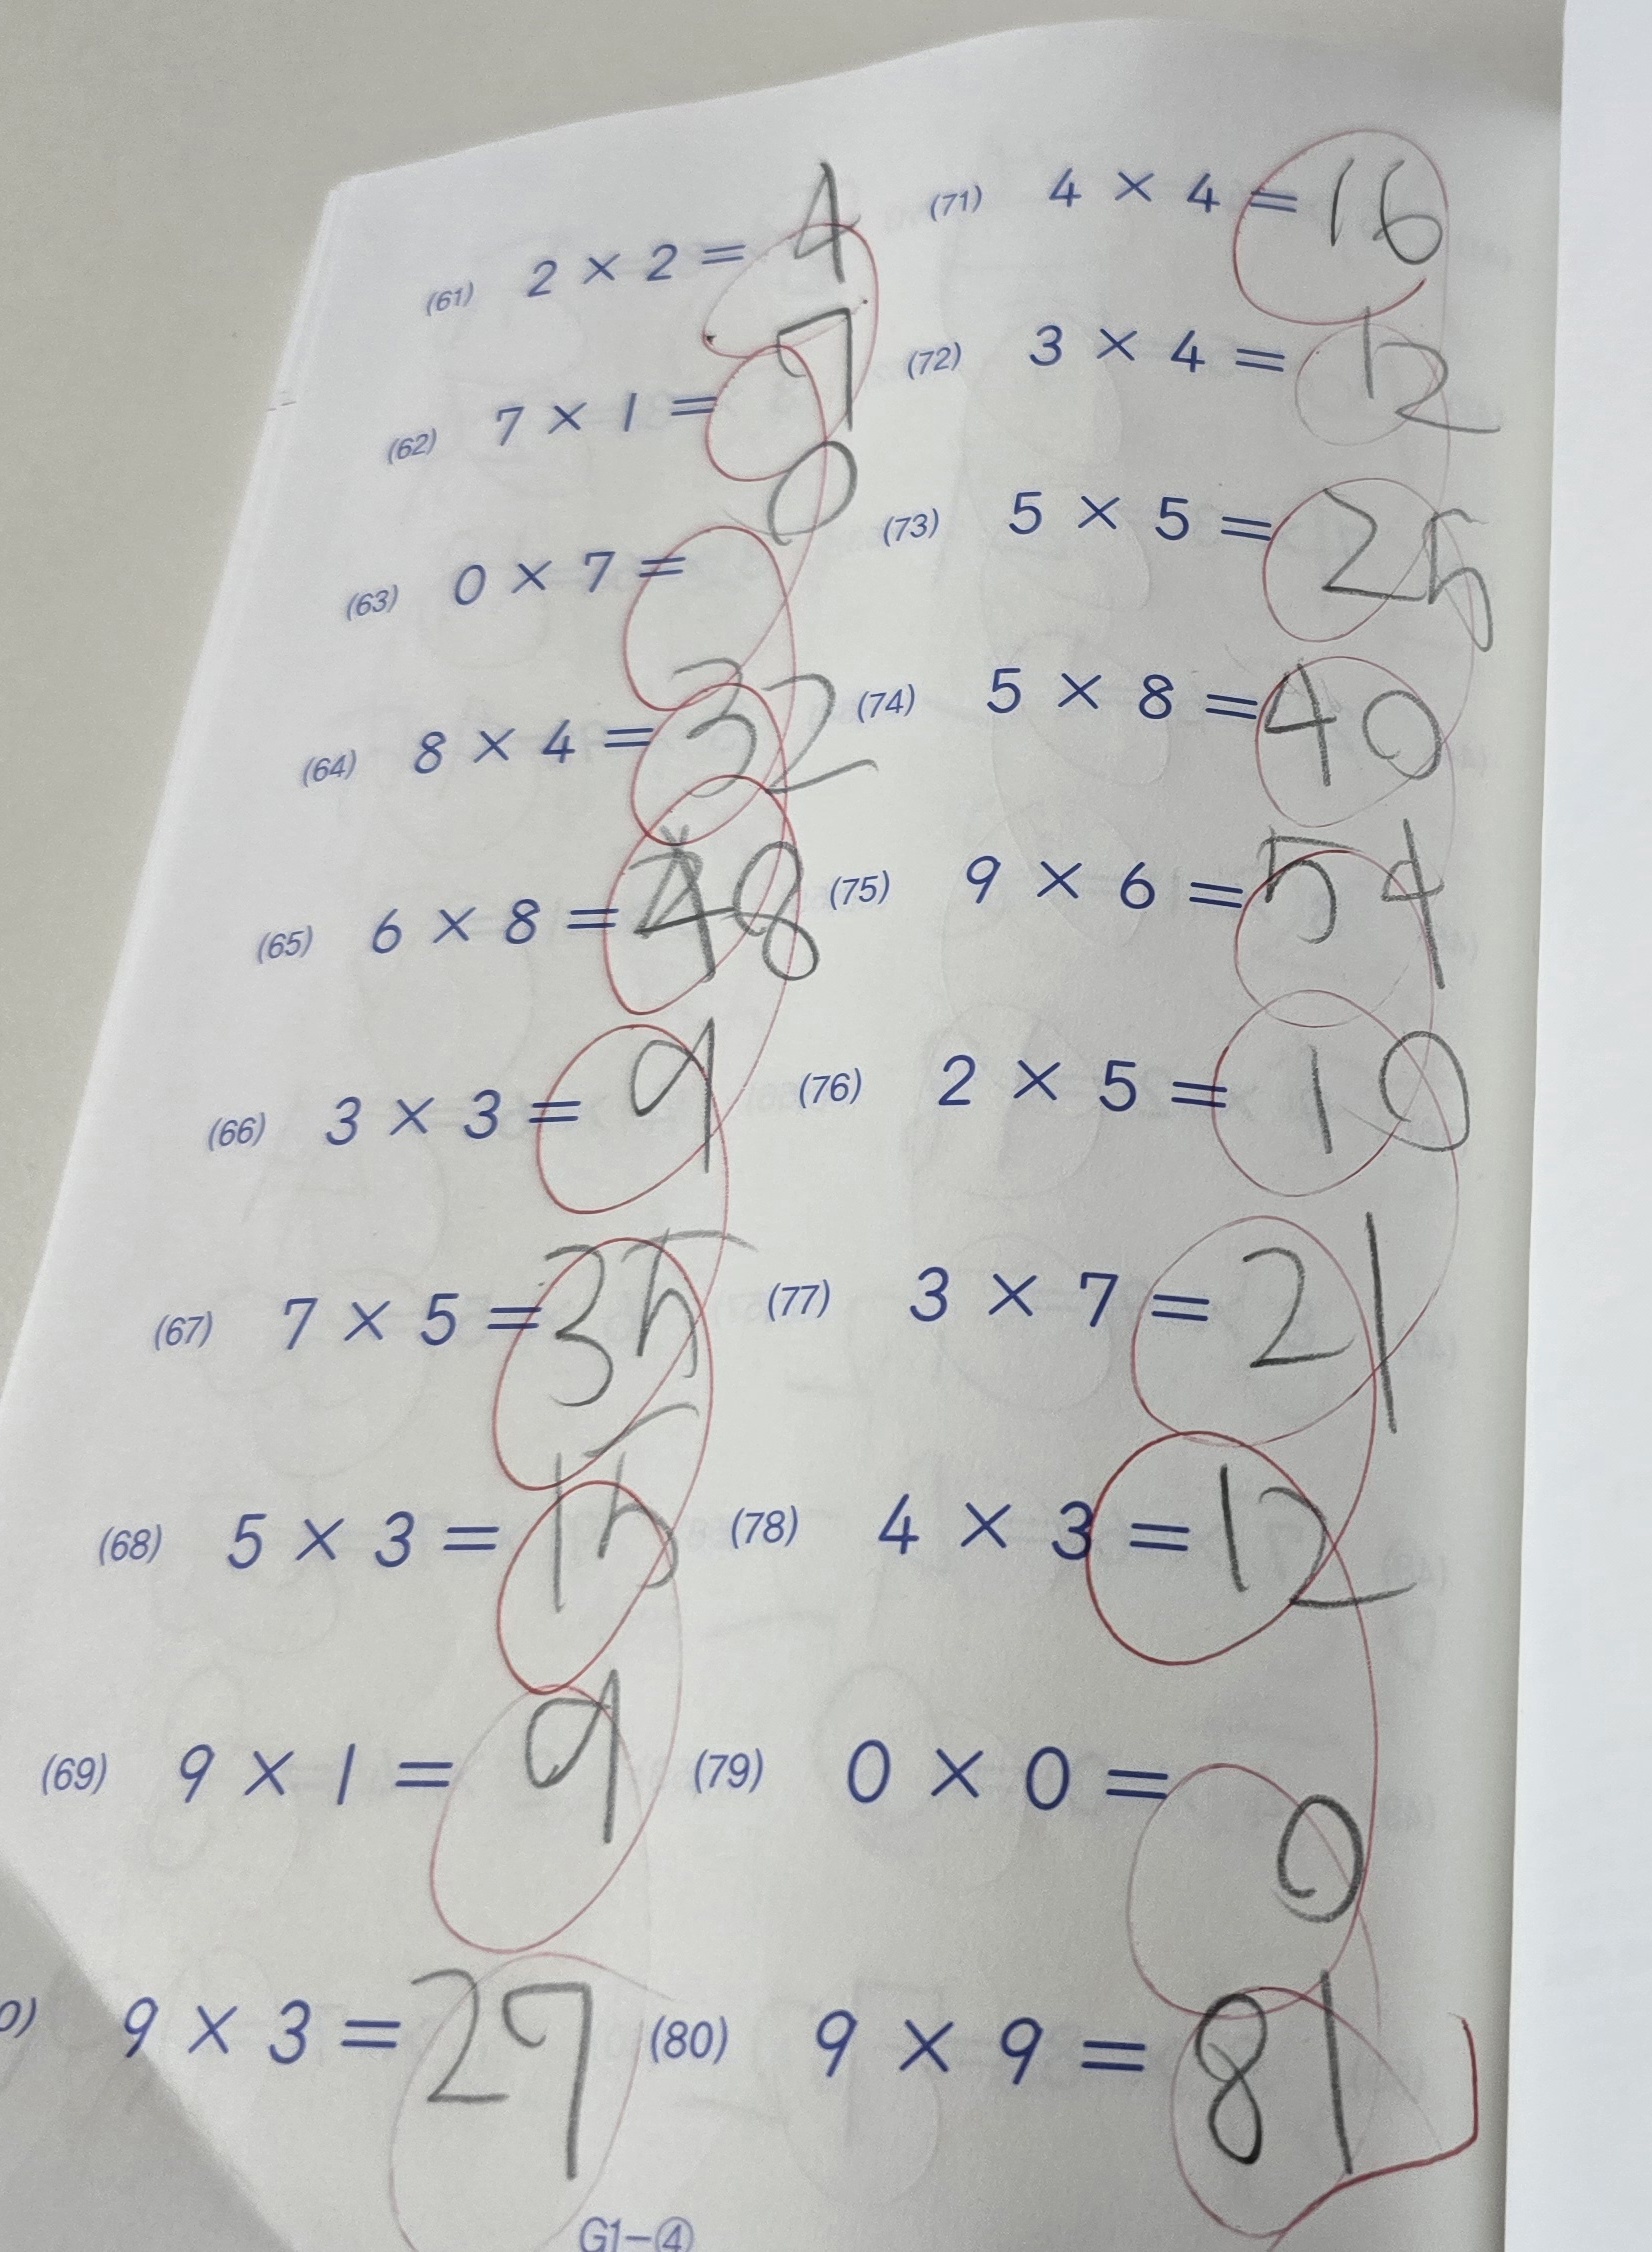 (61) 2 × 2 = 4
(62) 7 × 1 = 7
(63) 0 × 7 = 0
(64) 8 × 4 = 32
(65) 6 × 8 = 48
(66) 3 × 3 = 9
(67) 7 × 5 = 35
(68) 5 × 3 = 15
(69) 9 × 1 = 9
0) 9 × 3 = 27
(71) 4 × 4 = 16
(72) 3 × 4 = 12
(73) 5 × 5 = 25
(74) 5 × 8 = 40
(75) 9 × 6 = 54
(76) 2 × 5 = 10
(77) 3 × 7 = 21
(78) 4 × 3 = 12
(79) 0 × 0 = 0
(80) 9 × 9 = 81
G1-④